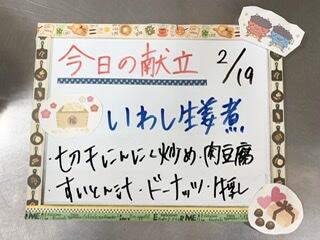 今日の献立
2/19
いわし生姜煮
・切干にんにく炒め・肉豆腐
・すいとん汁・ドーナッツ・牛乳